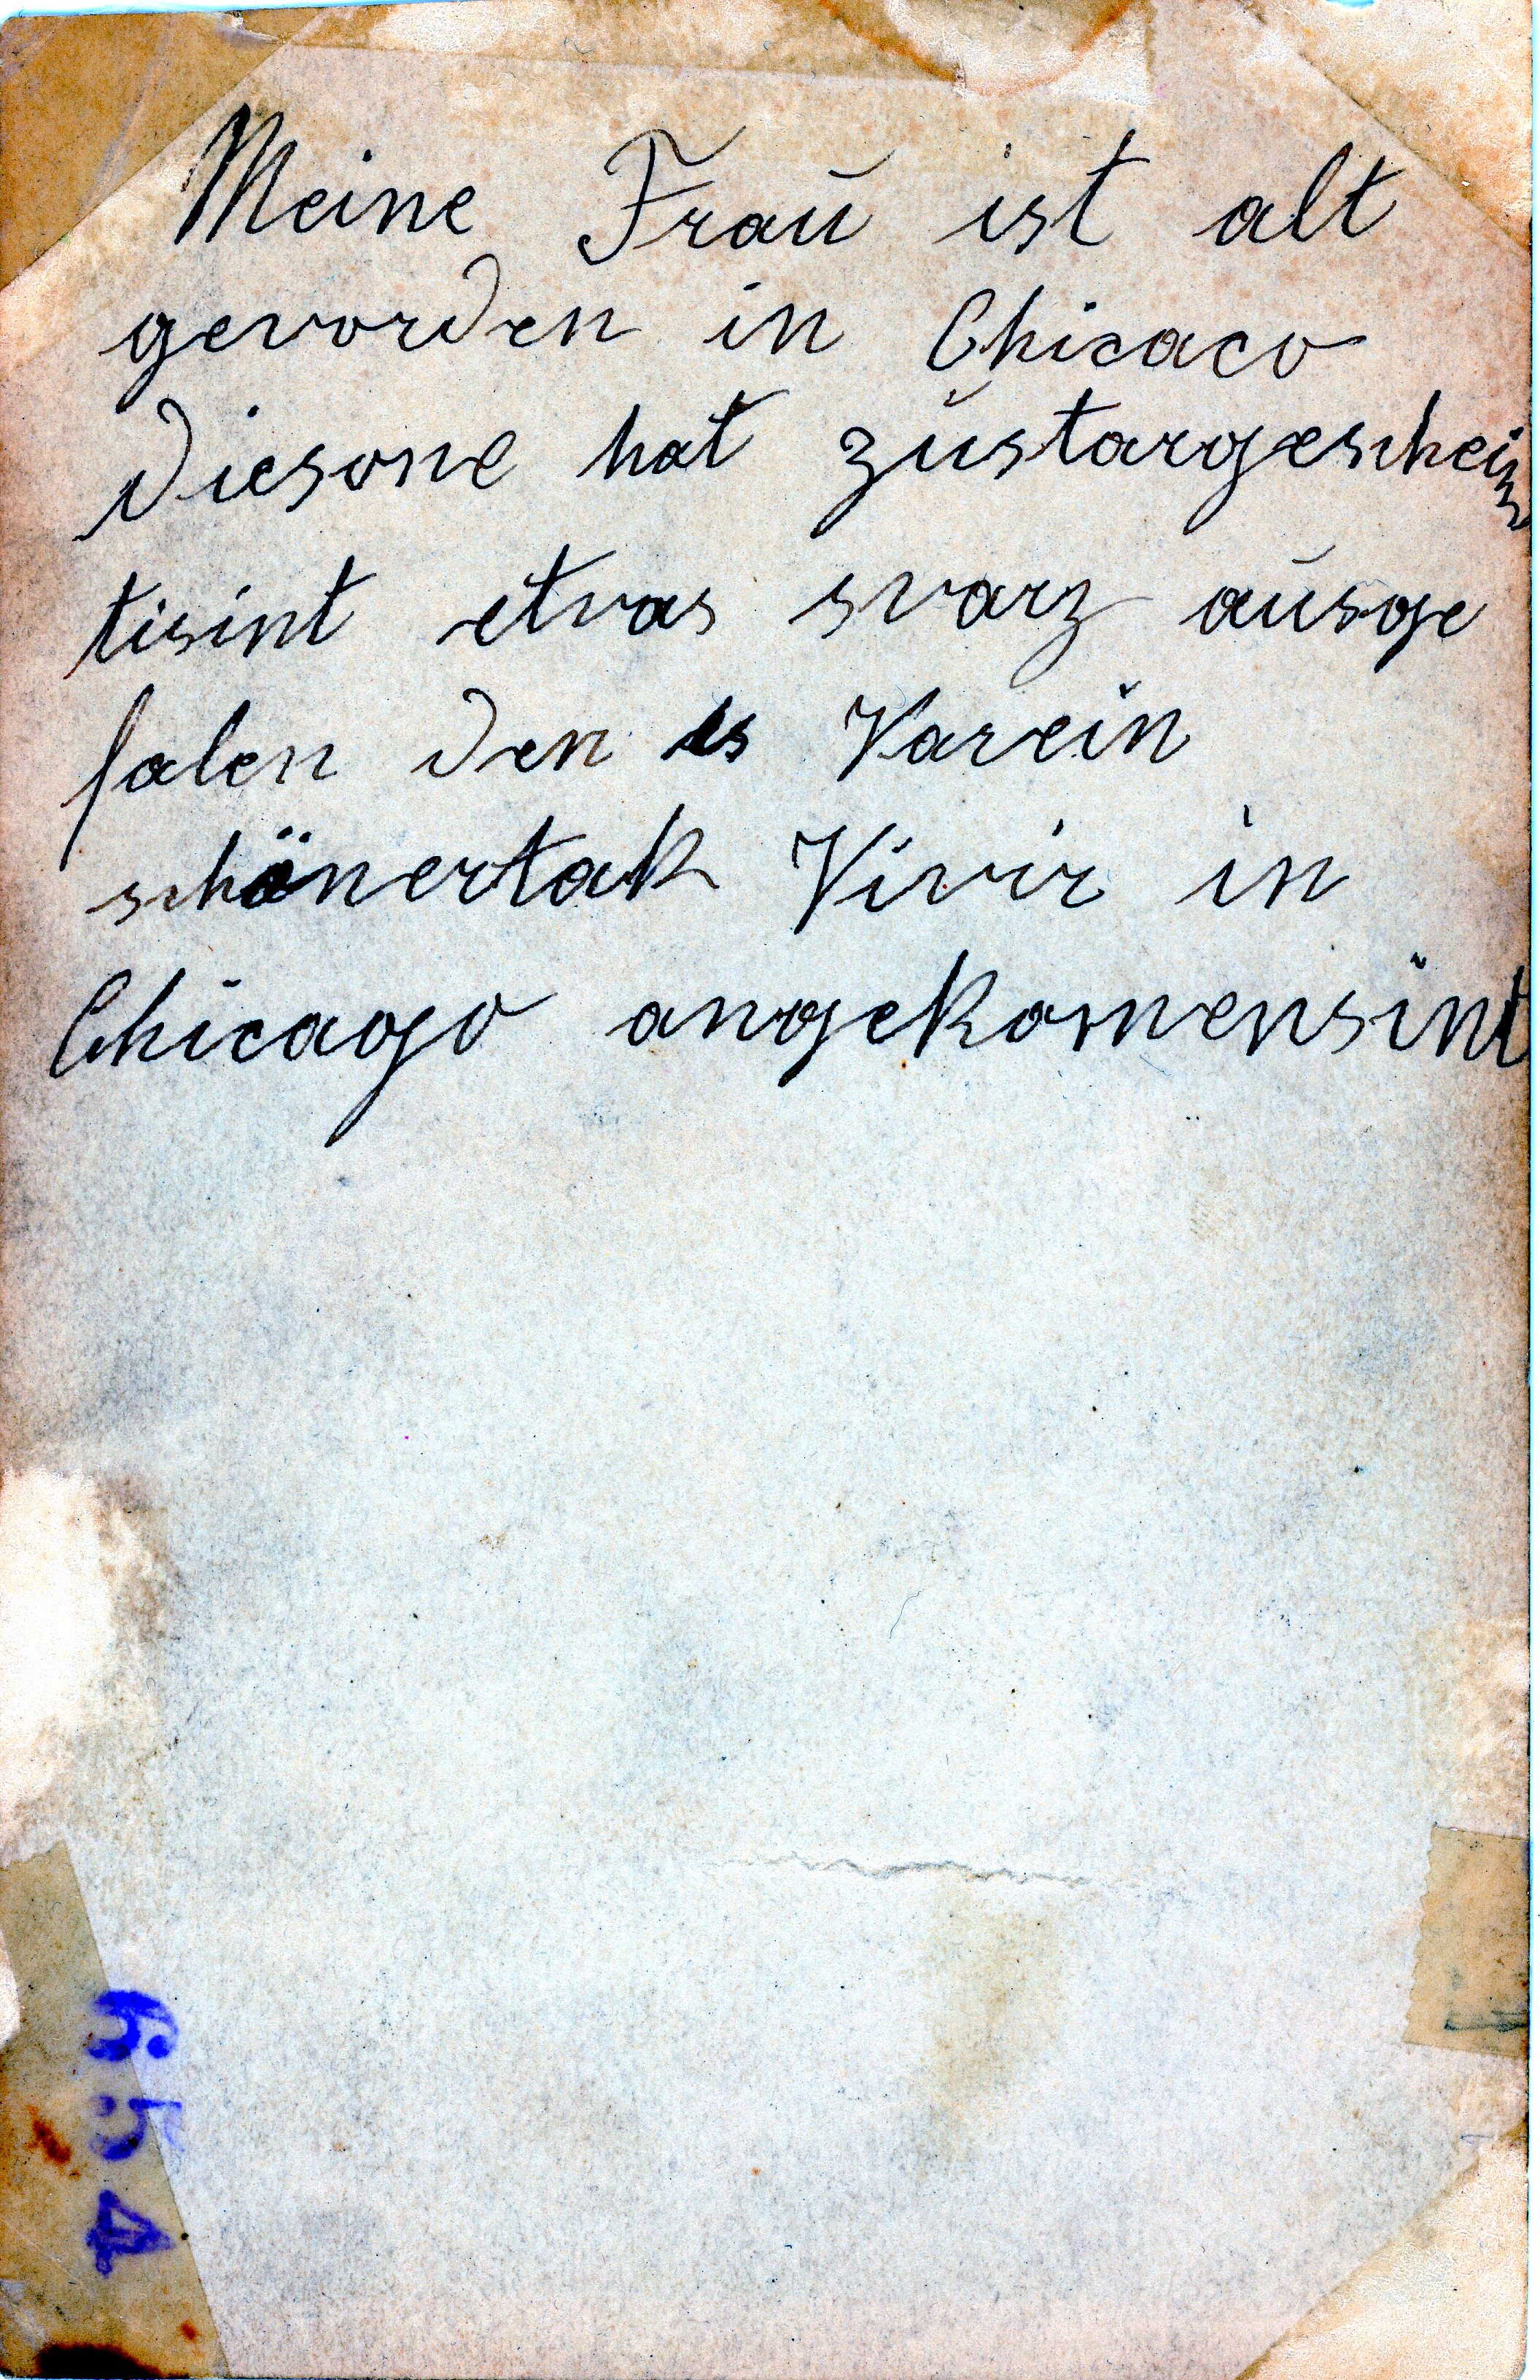 Meine Frau ist alt
gevorden in Chicaco
Diesone hat zustargeschein
tisint etvas svarz ausge
falen den es Varein
schönertak Vivir in
Chicago angekomensint
654